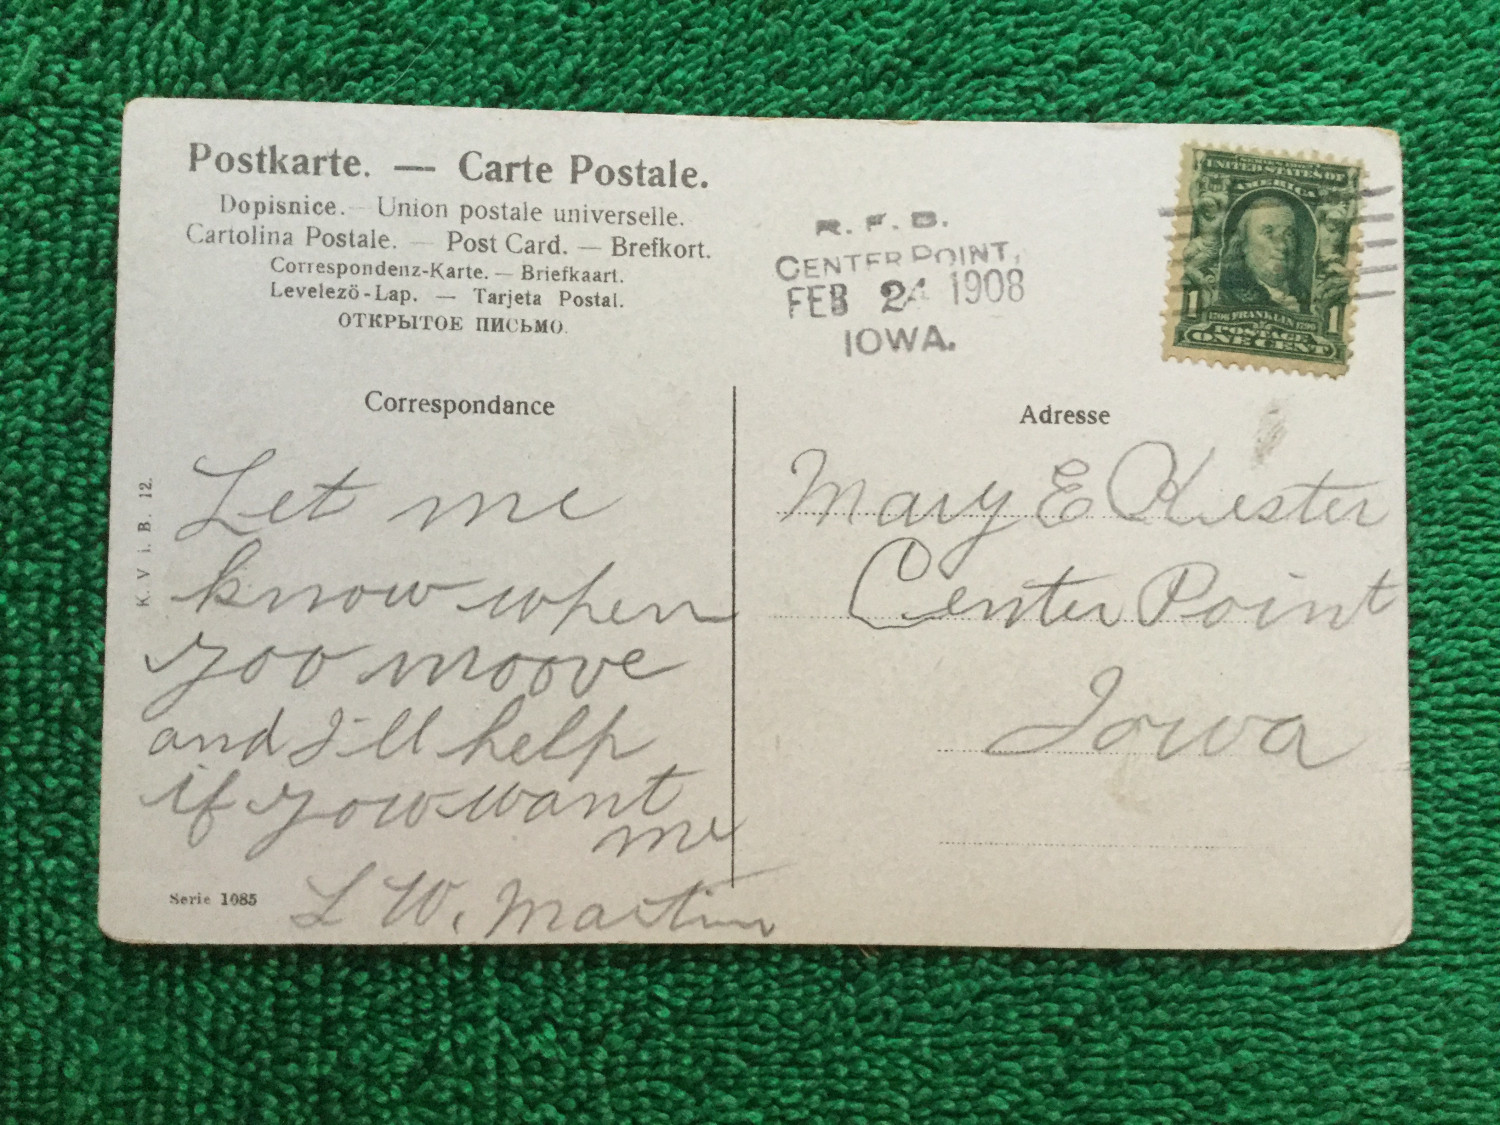 Postkarte. — Carte Postale.
Dopisnice. — Union postale universelle.
Cartolina Postale. — Post Card. — Brefkort.
Correspondenz-Karte. — Briefkaart.
Levelező-Lap. — Tarjeta Postal.
ОТКРЫТОЕ ПИСЬМО.
R. F. D.
CENTER POINT,
FEB 24 1908
IOWA.
UNITED STATES OF
AMERICA
1 1
1706 FRANKLIN 1790
POSTAGE
ONE CENT
Correspondance
Let me
know when
yoo moove
and I'll help
if yow want
me
L W. Martin
K. V i. B. 12.
Serie 1085
Adresse
Mary E Hester
Center Point
Iowa